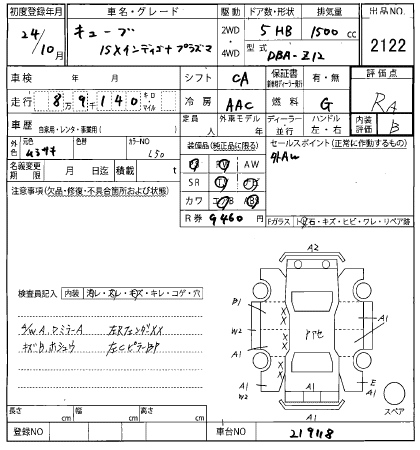 初度登録年月 車名・グレード 駆動 ドア数・形状 排気量 出品NO.
24/10月 キューブ 2WD 5HB 1500cc 2122
15Xインディゴ+プラズマ 4WD 型式 DBA-Z12
車検 年 月 シフト CA 保証書 有・無 評価点
走行 8万9千140キロ・マイル 冷房 AAC 燃料 G RA
車歴 自家用・レンタ・事業用( ) 定員 人 外車モデル 年 ディーラー・並行 ハンドル 左・右 内装評価 B
外色 元色 色替 カラーNO L50 装備品(純正品に限る) セールスポイント(正常に作動するもの)
名義変更期限 月 日迄 積載 t AW 外AW
注意事項(欠品・修復・不具合箇所および状態) SR ナビ
カワ
R券 9460円
Fガラス トビ石・キズ・ヒビ・ワレ・リペア跡
検査員記入 内装 汚レ・スレ・キズ・キレ・コゲ・穴
A/W A. DミラーA 左RフェンダーXX
キズB. ホシュウ 左CピラーBP
A2
B1 A1
W2
アアセ
A1
A1 W2 E A1
A1
スペア
長さ cm 幅 cm 高さ cm
登録NO 車台NO 219118